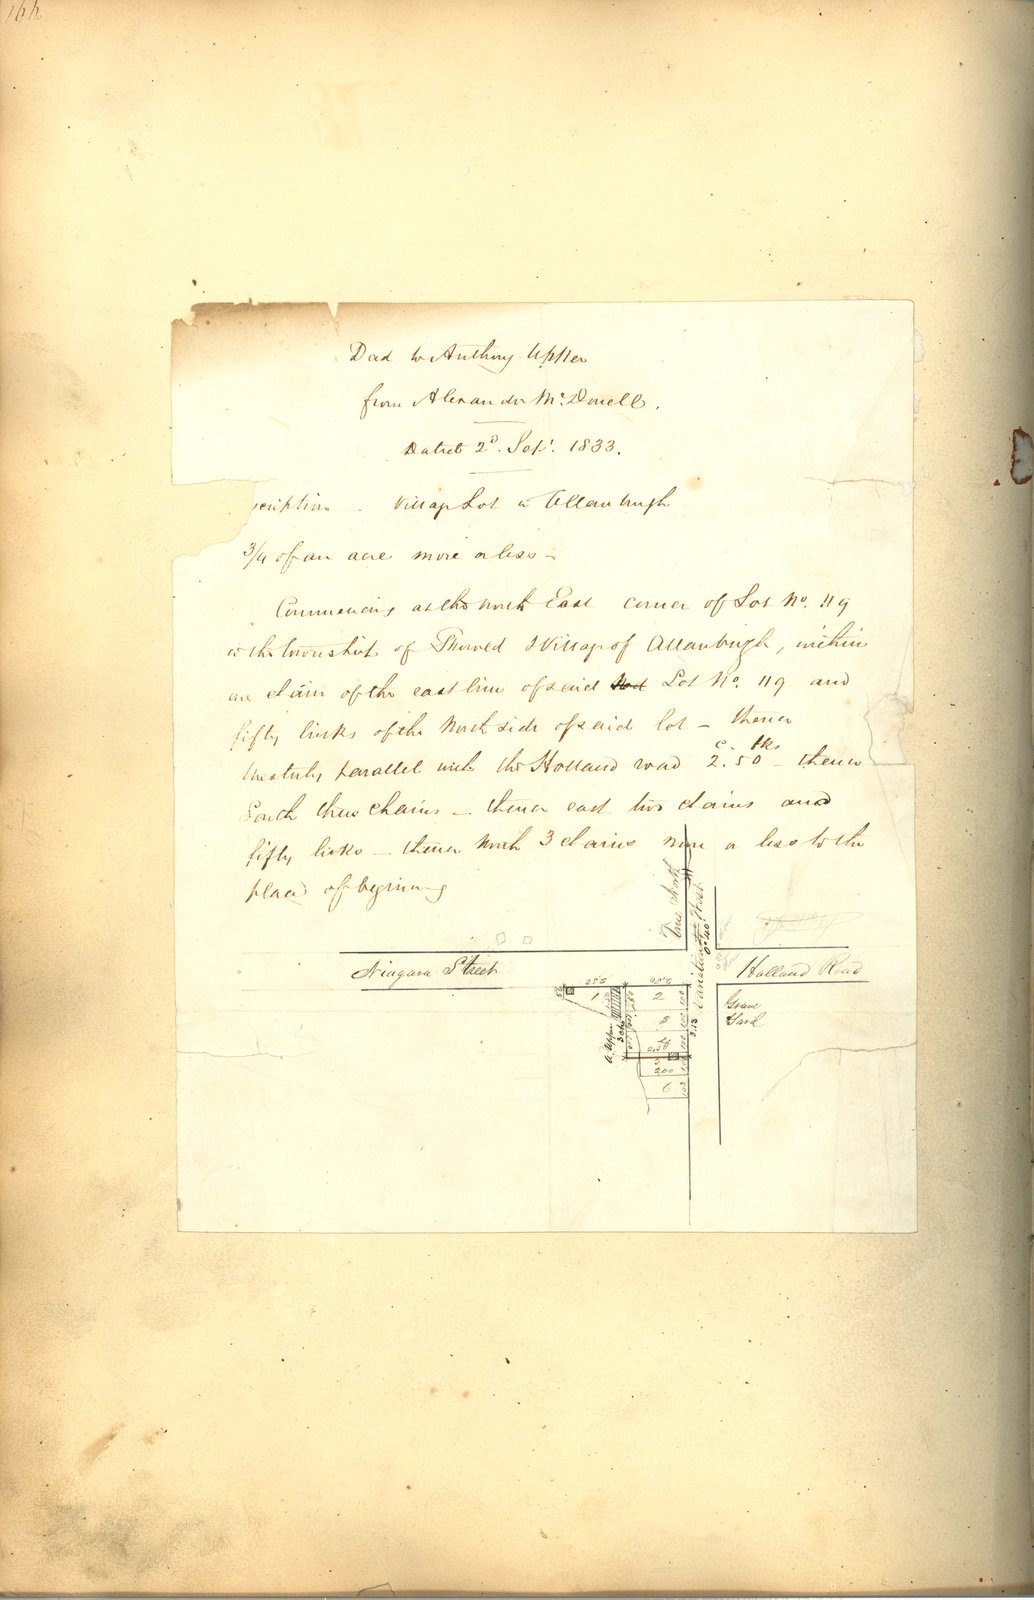 166
Deed to Anthony Upper
from Alexander McDonell.
Dated 2d. Sept. 1833.
scription - Village Lot in Allanburgh
3/4 of an acre more or less -
Commencing at the north East corner of Lot No. 119
in the township of Thorold & Village of Allanburgh, within
one chain of the east line of said Lot No. 119 and
fifty links of the North side of said lot - thence
Westerly parallel with the Holland road 2.50 - thence
c. lks
South three chains - thence east two chains and
fifty links - thence North 3 chains more or less to the
place of begining
True North
Variation West
0° 40'
Niagara Street
Holland Road
Grave
Yard
1
2
3
4
200
6
100
A. Upper
3 chs
3.13